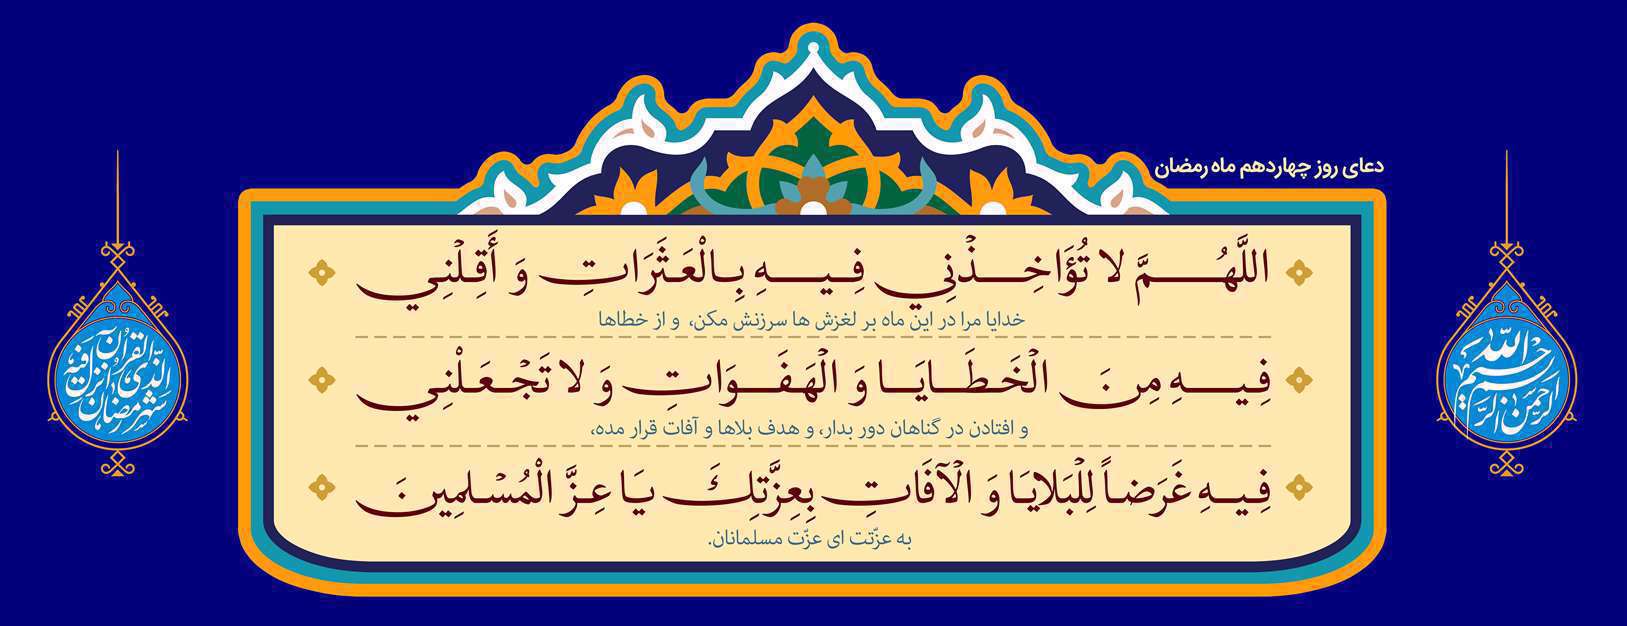 دعای روز چهاردهم ماه رمضان
اللَّهُمَّ لا تُؤَاخِذْنِي فِيهِ بِالْعَثَرَاتِ وَ أَقِلْنِي
خدایا مرا در این ماه بر لغزش ها سرزنش مکن، و از خطاها
فِيهِ مِنَ الْخَطَايَا وَ الْهَفَوَاتِ وَ لا تَجْعَلْنِي
و افتادن در گناهان دور بدار، و هدف بلاها و آفات قرار مده،
فِيهِ غَرَضاً لِلْبَلايَا وَ الْآفَاتِ بِعِزَّتِكَ يَا عِزَّ الْمُسْلِمِينَ
به عزّتت ای عزّت مسلمانان.
بسم الله الرحمن الرحیم
شهر رمضان الذی انزل فیه القرآن